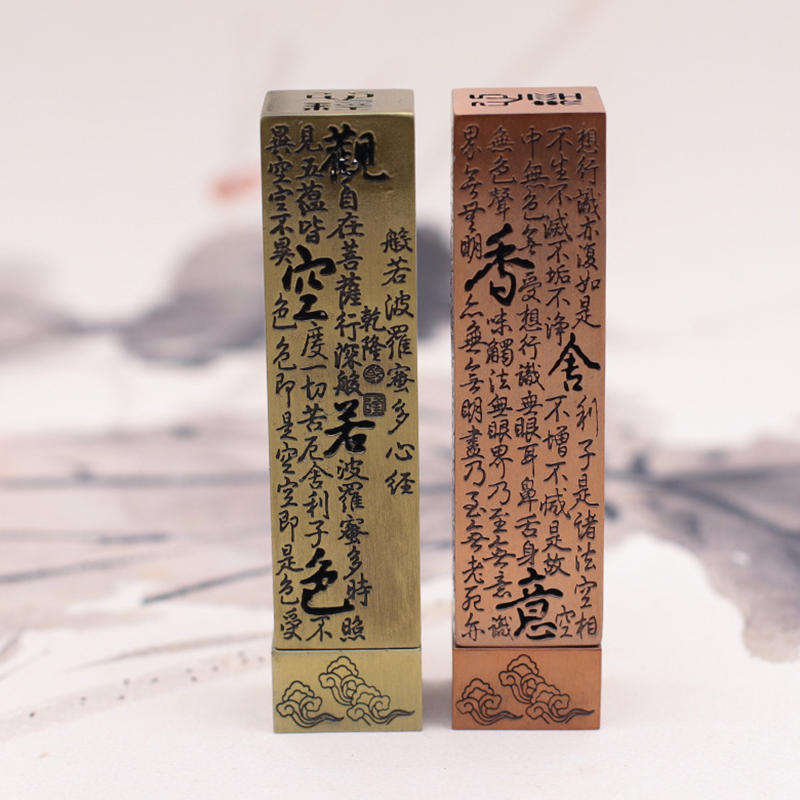 般若波羅蜜多心経
乾隆
觀自在菩薩行深般若波羅蜜多時照
見五蘊皆空度一切苦厄舍利子色不
異空空不異色色即是空空即是色受
想行識亦復如是舍利子是諸法空相
不生不滅不垢不净不增不减是故空
中無色無受想行識無眼耳鼻舌身意
無色聲香味觸法無眼界乃至無意識
界無無明亦無無明盡乃至無老死亦